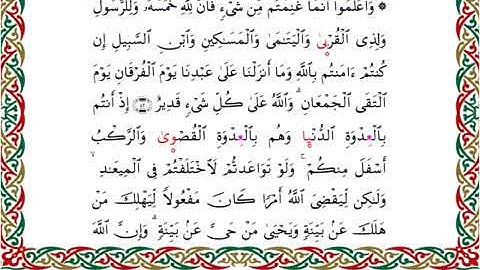 ۞ وَاعْلَمُوا أَنَّمَا غَنِمْتُم مِّن شَيْءٍ فَأَنَّ لِلَّهِ خُمُسَهُۥ وَلِلرَّسُولِ
وَلِذِى الْقُرْبَىٰ وَالْيَتَٰمَىٰ وَالْمَسَٰكِينِ وَابْنِ السَّبِيلِ إِن
كُنتُمْ ءَامَنتُم بِاللَّهِ وَمَا أَنزَلْنَا عَلَىٰ عَبْدِنَا يَوْمَ الْفُرْقَانِ يَوْمَ
الْتَقَى الْجَمْعَانِ ۗ وَاللَّهُ عَلَىٰ كُلِّ شَيْءٍ قَدِيرٌ إِذْ أَنتُم
بِالْعِدْوَةِ الدُّنْيَا وَهُم بِالْعِدْوَةِ الْقُصْوَىٰ وَالرَّكْبُ
أَسْفَلَ مِنكُمْ ۚ وَلَوْ تَوَاعَدتُّمْ لَاخْتَلَفْتُمْ فِى الْمِيعَٰدِ ۙ
وَلَٰكِن لِّيَقْضِىَ اللَّهُ أَمْرًا كَانَ مَفْعُولًا لِّيَهْلِكَ مَنْ
هَلَكَ عَن بَيِّنَةٍ وَيَحْيَىٰ مَنْ حَىَّ عَن بَيِّنَةٍ ۗ وَإِنَّ اللَّهَ